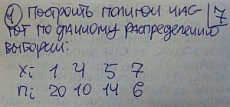 ④ Построить полигон час- 7
тот по данному распределению
выборки:
xi 1 4 5 7
ni 20 10 14 6